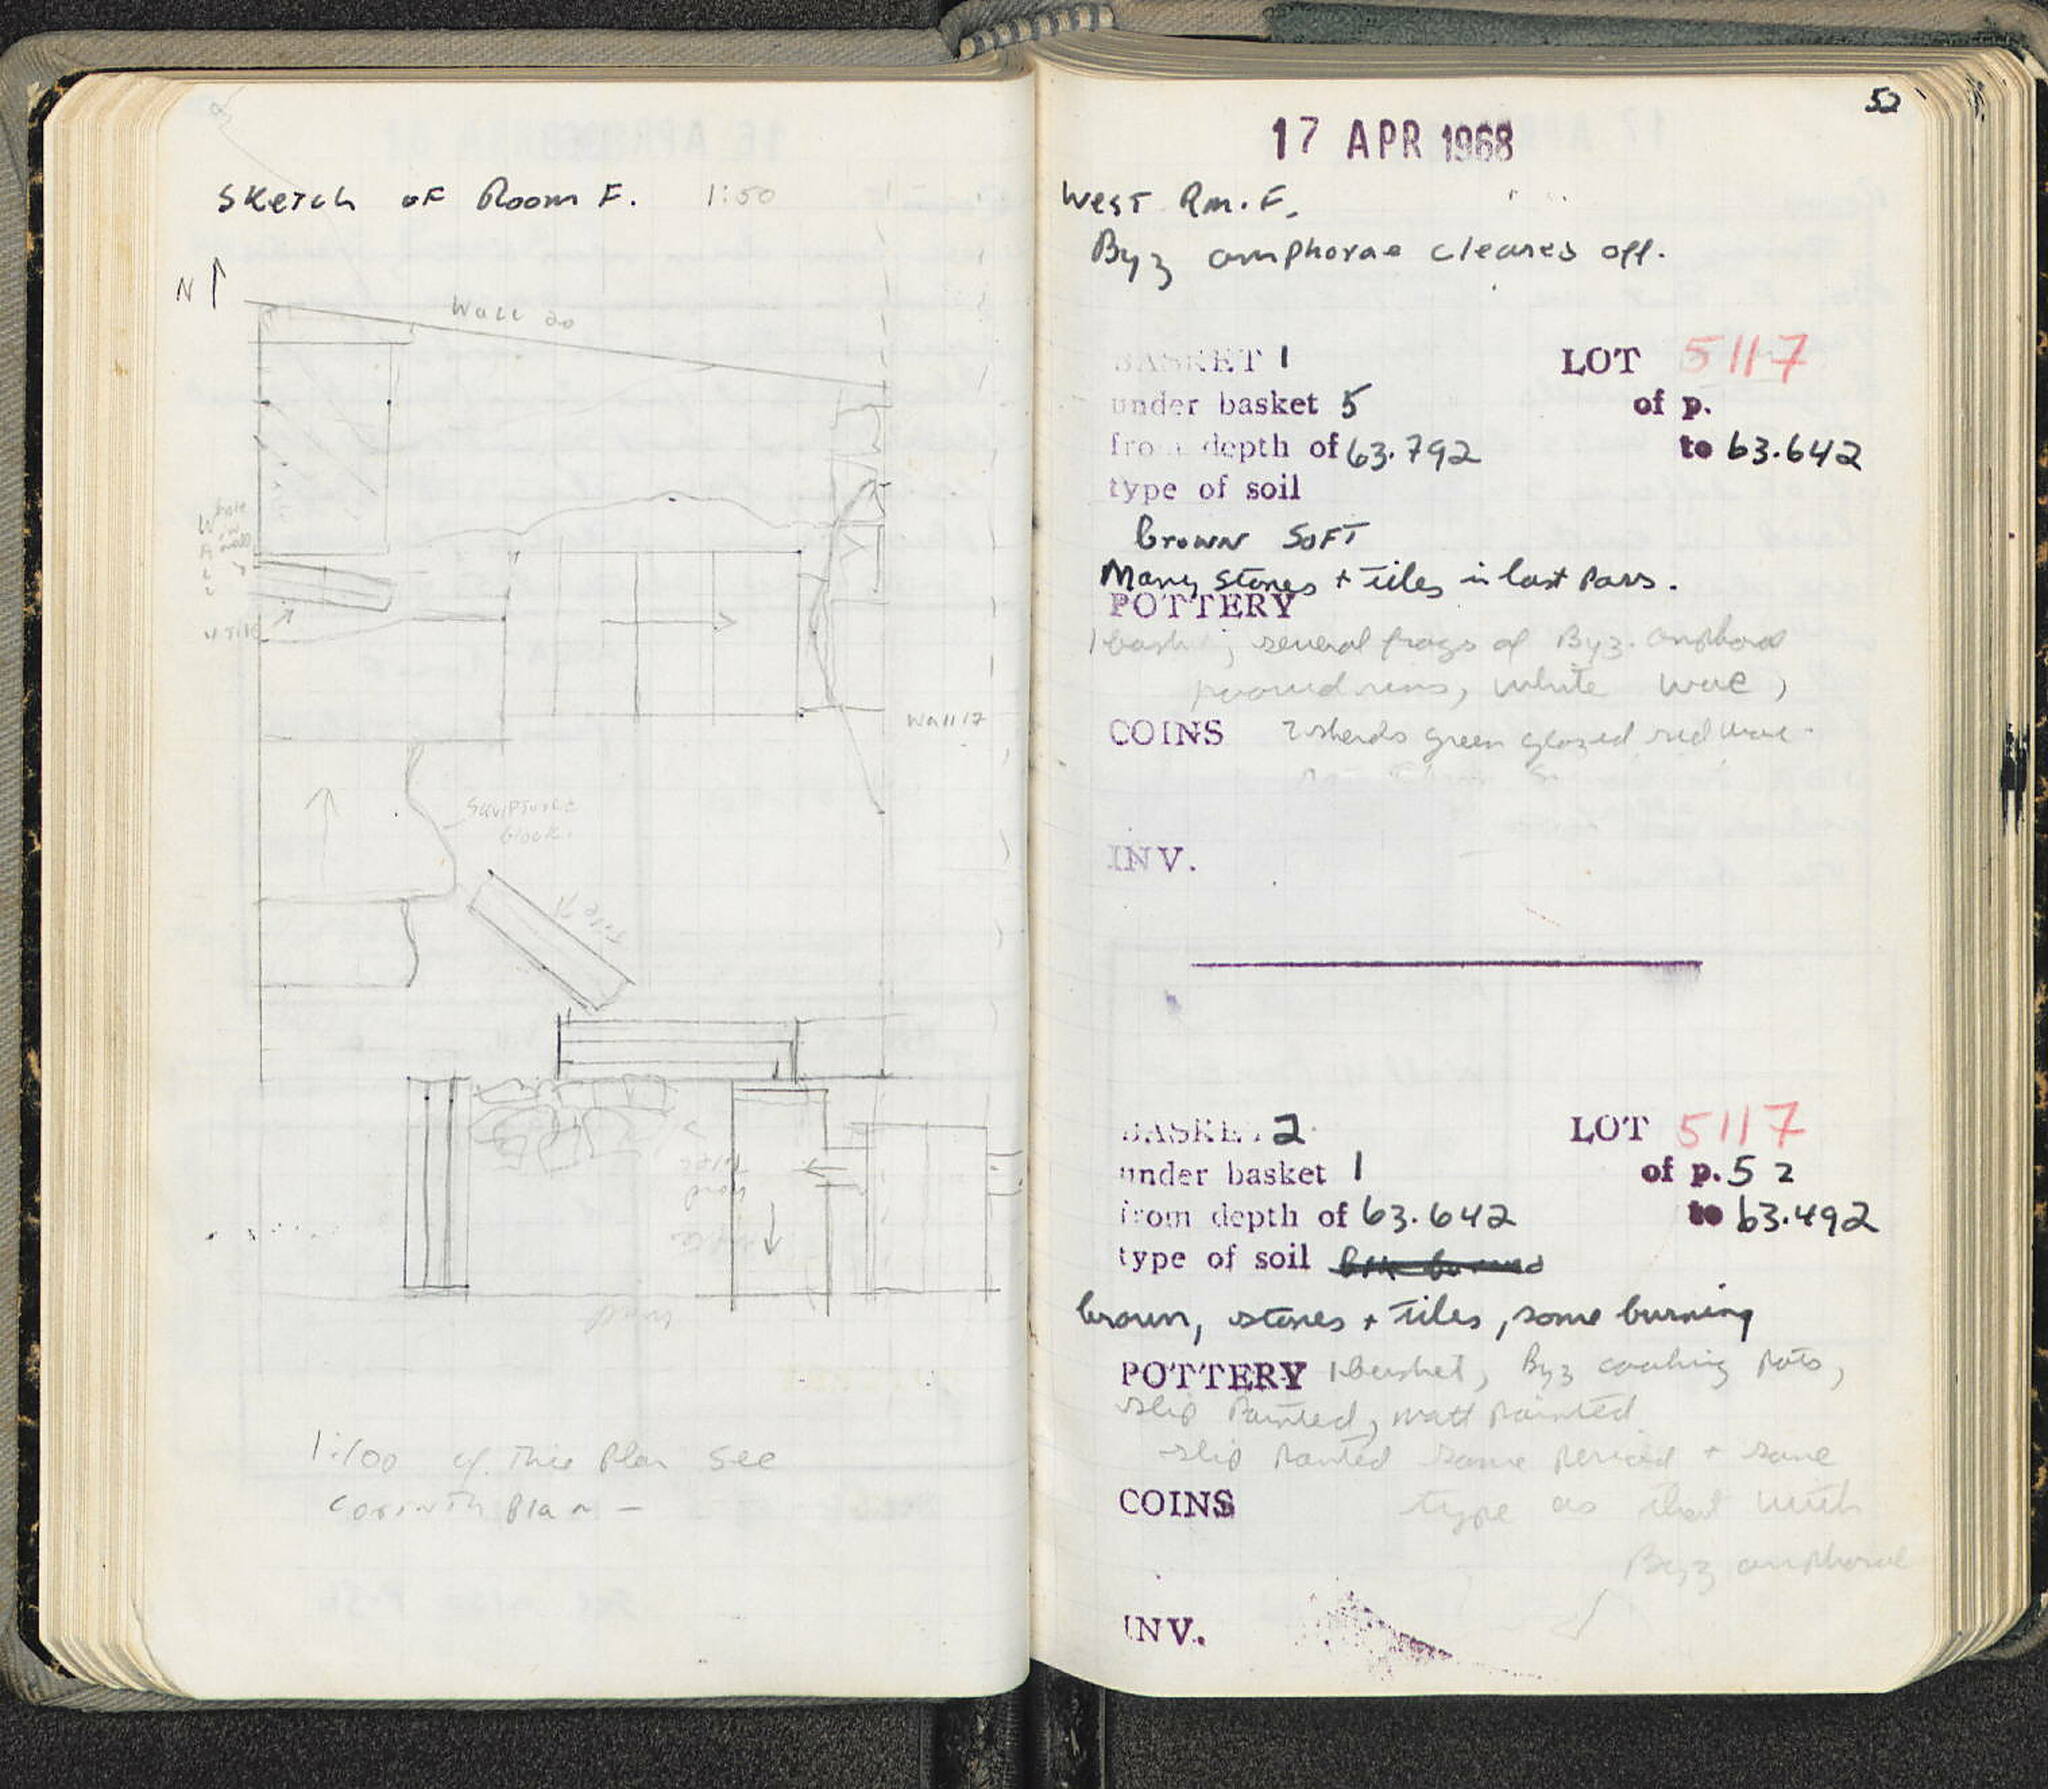 Sketch of Room F. 1:50
N
Wall 20
hole in wall
4 Tile
Wall 17
Sculpture
block.
Tile
wall
1:100 of This Plan See
Corinth Plan —
52
17 APR 1968
West Rm. F.
Byz amphorae cleared off.
BASKET 1 LOT 5117
under basket 5 of p.
from depth of 63.792 to 63.642
type of soil
brown soft
Many stones + tiles in last pass.
POTTERY
1 bask ; several frags of Byz. amphora
rims, white ware,
COINS 2 sherds green glazed red ware.
INV.
BASKET 2 LOT 5117
under basket 1 of p. 52
from depth of 63.642 to 63.492
type of soil
brown, stones + tiles, some burning
POTTERY 1 basket, Byz cooking pots,
slip painted, matt painted
slip painted same period + same
COINS type as that with
Byz amphorae
INV.